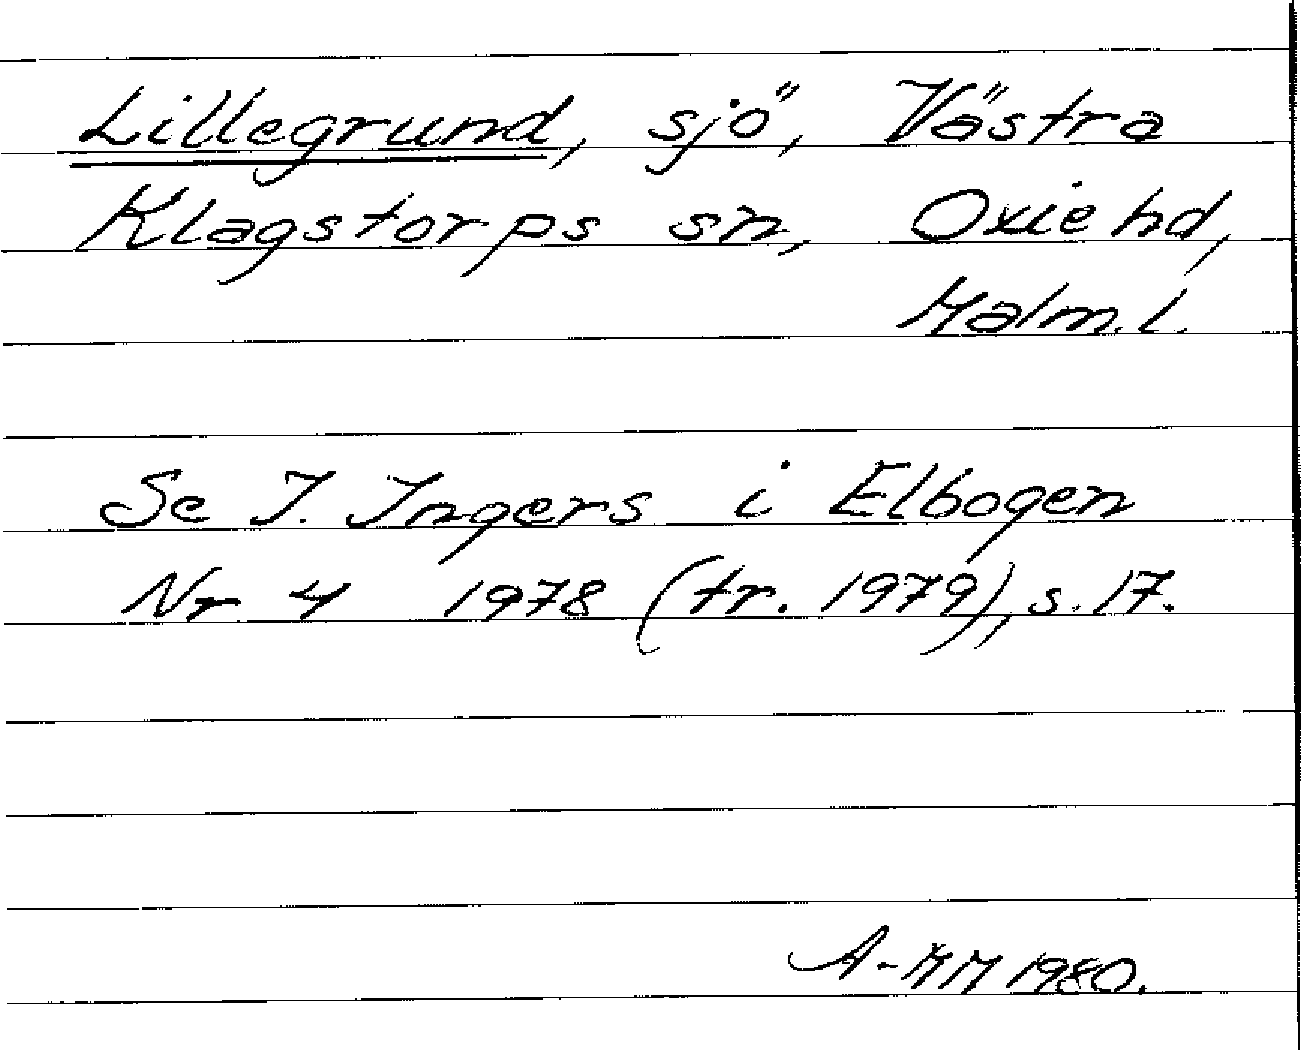 Lillegrund, sjö, Västra
Klagstorps sn, Oxie hd,
Malm. l.
Se I. Ingers i Elbogen
Nr 4 1978 (tr. 1979), s. 17.
A-MM 1980.